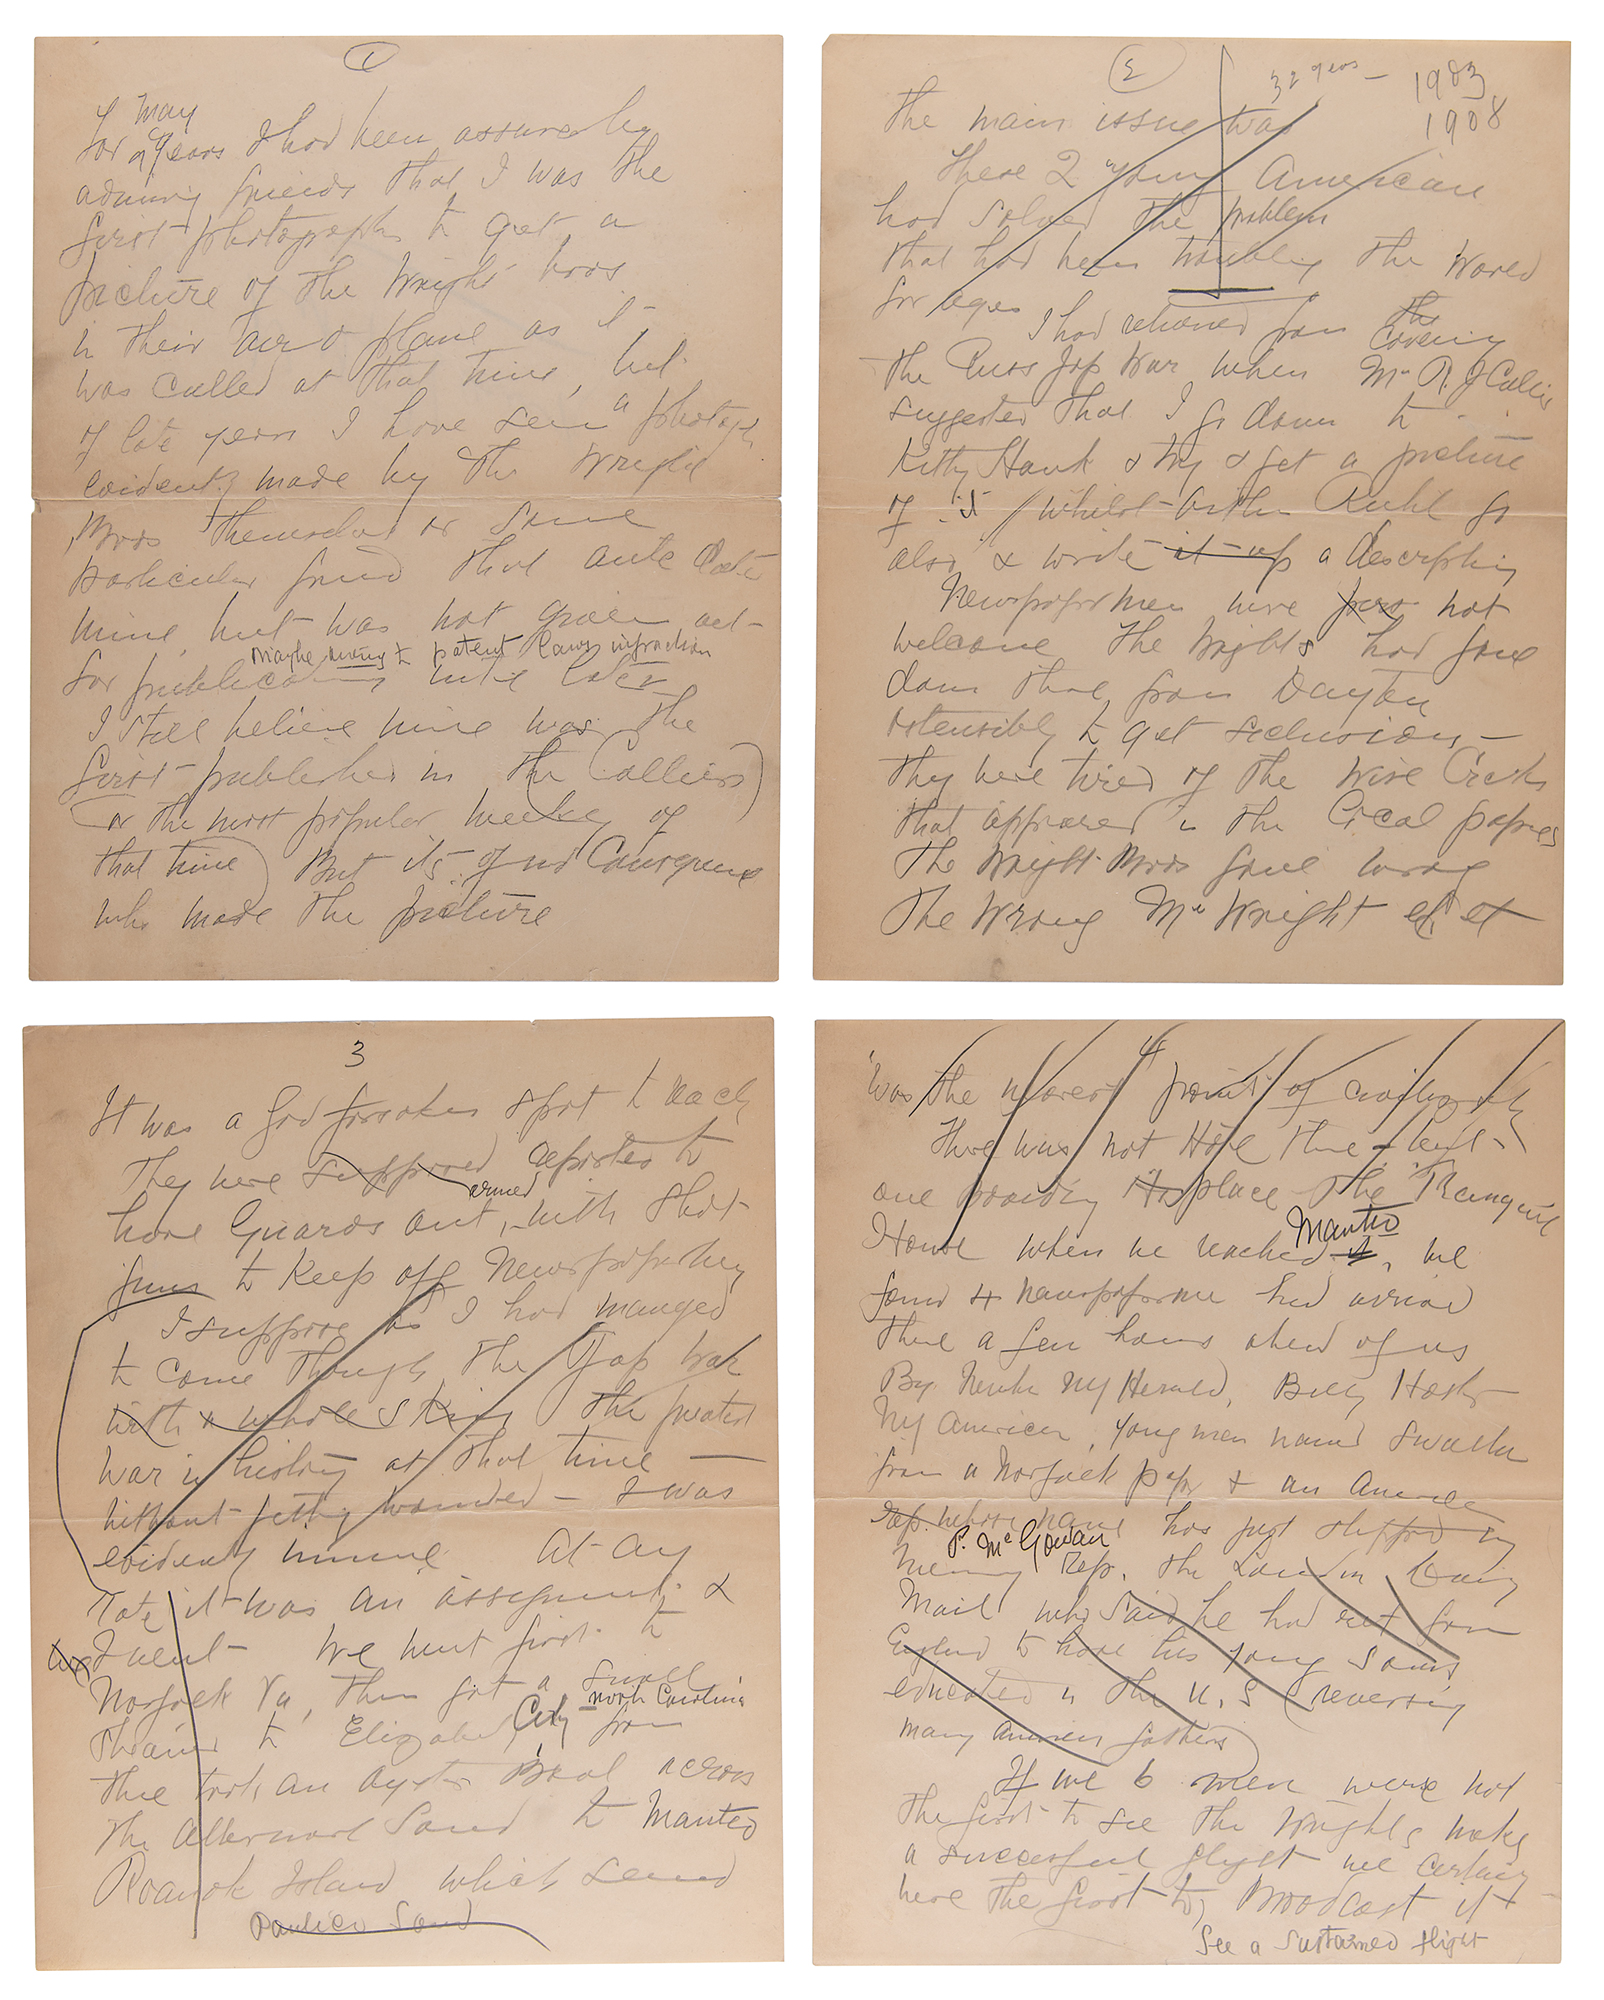 1
many
For years I had been assured by
admiring friends that I was the
first photographer to get a
picture of the Wright bros
in their aero plane as it
was called at that time, but
of late years I have seen a photograph
evidently made by the Wright
Bros themselves or some
particular friend that ante dates
mine, but was not given out
maybe owing to patent laws infraction
for publication until later
I still believe mine was the
first published in the Colliers
or the most popular weekly of
that time) But its of no Consequence
who made the picture
2
32 years — 1903
1908
The main issue was
These 2 young American
had solved the problem
that had been troubling the World
for ages
I had returned from the covering
the Russ Jap War when Mr R. J Collier
suggested that I go down to
Kitty Hawk & try & get a picture
of it / whilst Arthur Ruhl go
also & write it up a description
Newspaper men were not
welcome The Wrights had gone
down there from Dayton
ostensibly to get seclusion —
They were tired of the wise Cracks
that appeared in the Local papers
The Wright Bros gone wrong
The Wrong Mr Wright etc
3
It was a God forsaken spot to reach
They were supposed reported to
have Guards out, armed with shot-
guns to Keep off Newspapermen
I suppose as I had manged
to come through the Jap War
with a whole skin the greatest
War in history at that time —
without getting wounded — I was
evidently immune At any
rate it was an assignment &
I went We went first to
Norfolk Va, then got a small
train to Elizabeth City North Carolina from
there took an oyster Boat across
the Albemarl Sound to Manteo
Roanok Island which seemed
Pamlico Sound
4
"was the nearest point of civilization
There was not Hotel there but
one boarding place The "Tranquil
House when we reached Manteo, we
found 4 newspapermen had arrived
there a few hours ahead of us
By Newton NY Herald, Billy Hoster
NY American, young man named
from a Norfolk paper & an American
rep. whose name has just slipped my
memory P. McGowan Rep. the London Daily
Mail who said he had sent from
England to have his young sons
educated in the U.S (reversing
many American fathers)
If we 6 men were not
the first to see the Wrights make
a successful flight we certainly
were the first to Broadcast it &
See a sustained flight